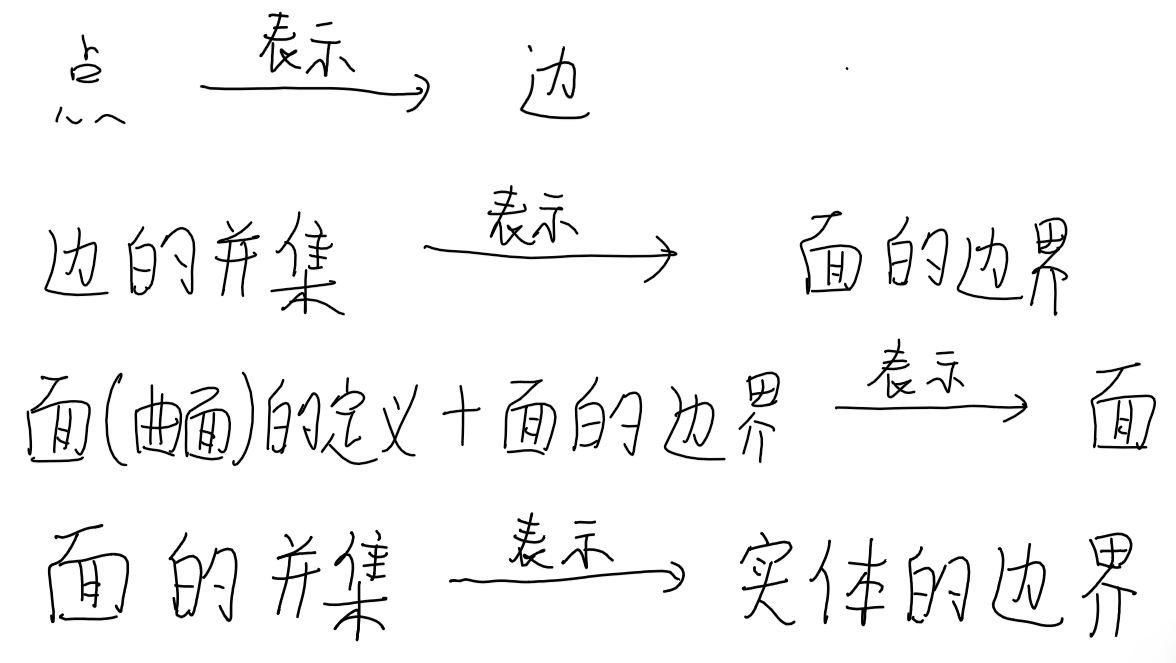 点 表示→ 边
边的并集 表示→ 面的边界
面(曲面)的定义+面的边界 表示→ 面
面的并集 表示→ 实体的边界